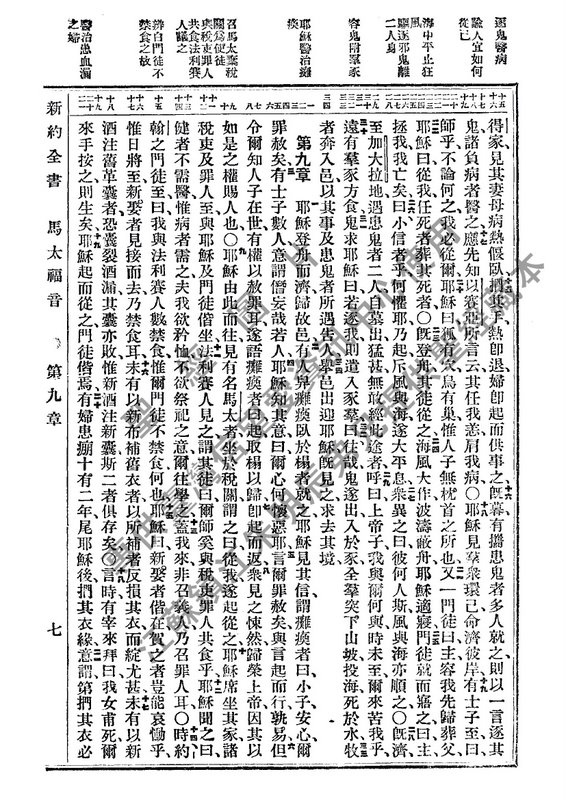 逐鬼醫病
論人宜如何
從己
海中平止狂
風
驅逐邪鬼離
二人身
容鬼附羣豕
耶穌醫治癱
瘓
召馬太棄稅
關爲使徒
與稅吏罪人
共食法利賽
人議之
辨白門徒不
禁食之故
醫治患血漏
之婦
得家見其妻母病熱偃臥捫其手熱卽退婦卽起而供事之旣暮有攜患鬼者多人就之則以一言逐其
鬼諸負病者醫之應先知以賽亞所言云其任我恙肩我病〇耶穌見羣衆環己命濟彼岸有士子至曰
師乎不論何之我必從爾耶穌曰狐狸有穴飛鳥有巢惟人子無枕首之所也又一門徒曰主容我先歸葬父
耶穌曰從我任死者葬其死者〇旣登舟其徒從之海風大作波濤蔽舟耶穌適寢門徒就而寤之曰主
拯我我亡矣曰小信者乎何懼耶乃起斥風與海遂大平息衆異之曰彼何人斯風與海亦順之〇旣濟
至加大拉地遇患鬼者二人自墓出猛甚無敢經此途者呼曰上帝子我與爾何與時未至爾來苦我乎
遠有羣豕方食鬼求耶穌曰若逐我則造入豕羣曰往哉鬼遂出入於豕全羣突下山坡投海死於水牧
者奔入邑以其事及患鬼者所遇告人舉邑出迎耶穌旣見之求去其境
第九章 耶穌登舟旣濟歸故邑有人舁癱瘓臥於榻者就之耶穌見其信謂癱瘓者曰小子安心爾
罪赦矣有士子數人意謂僭妄哉若人耶穌知其意曰爾心何懷惡耶言爾罪赦矣與言起而行孰易但
令爾知人子在世有權以赦罪耳遂語癱瘓者曰起取榻以歸卽起而返衆見之悚然歸榮上帝因其以
如是之權賜人也〇耶穌由此而往見有名馬太者坐於稅關謂之曰從我遂起從之耶穌席坐其家諸
稅吏及罪人至與耶穌及門徒偕坐法利賽人見之謂其徒曰爾師奚與稅吏罪人共食乎耶穌聞之曰
健者不需醫惟病者需之夫我欲矜恤不欲祭祀之意爾往學之蓋我來非召義人乃召罪人耳〇時約
翰之門徒至曰我與法利賽人數禁食惟爾門徒不禁食何也耶穌曰新娶者偕在賀之者豈能哀慟乎
惟日將至新娶者見接而去乃禁食耳未有以新布補舊衣者以所補者反損其衣而綻尤甚未有以新
酒注舊革囊者恐囊裂酒漏其囊亦敗惟新酒注新囊斯二者俱存矣〇言時有宰來拜曰我女甫死爾
來手按之則生矣耶穌起而從之門徒偕焉有婦患崩十有二年尾耶穌後捫其衣緣意謂第捫其衣必
新約全書
馬太福音
第九章
七